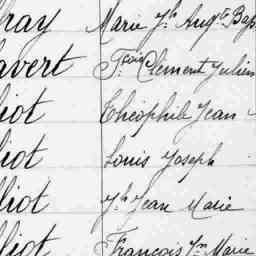 ray Marie Jh Augte Bap
avert Fcois Clement Julien
iot Théophile Jean
iot Louis Joseph
liot Jh Jean Marie
lliot François Jn Marie